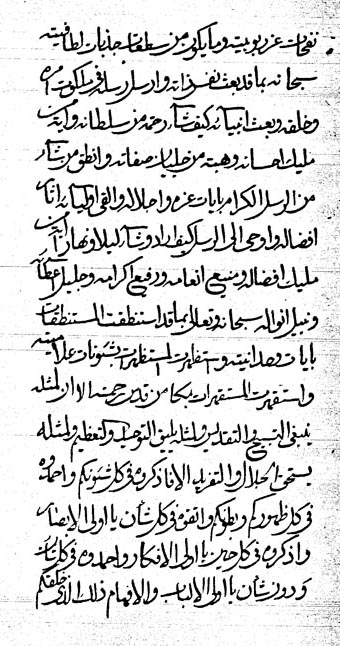 نفحات عز ربوبيته وما يكون من سطعات جذبات لطافيته
سبحانه بما قد بعث بنفس ذاته وارسل رسله في ملكوت امره
وخلقه وبعث انبيائه كيف شاء رحمة من سلطانه وآية من
مليك احسانه وهبة من جليل صفاته وانطق من شاء
من الرسل الكرام بايات عزه واجلاله والقى اوليائه اثار
افضاله واوحى الى الرسل كيف اراد وشاء ليلا ونهارا
مليك افضاله ومنيع انعامه ورفيع اكرامه وجليل اعطائه
ونبيل انواله سبحانه وتعالى بما قد استنطقت المستنطقات
بايات وحدانيته واستظهرت المستظهرات بشئونات
واستقهرت المستقهرات بكل من الا ان لمثله
ينبغي التسبيح والتقديس ولمثله يليق التوحيد والتعظيم ولمثله
يستحق الجلال والتفريد الا فاذكروه في كل شئونكم واحمدوه
في كل ظهوركم وبطونكم واتقوه في كل شأن يا اولى الابصار
واذكروه في كل حين يا اولى الافكار واحمدوه في كل شأن
ودون شأن يا اولى الالباب والافهام ذلك الذي خلقكم